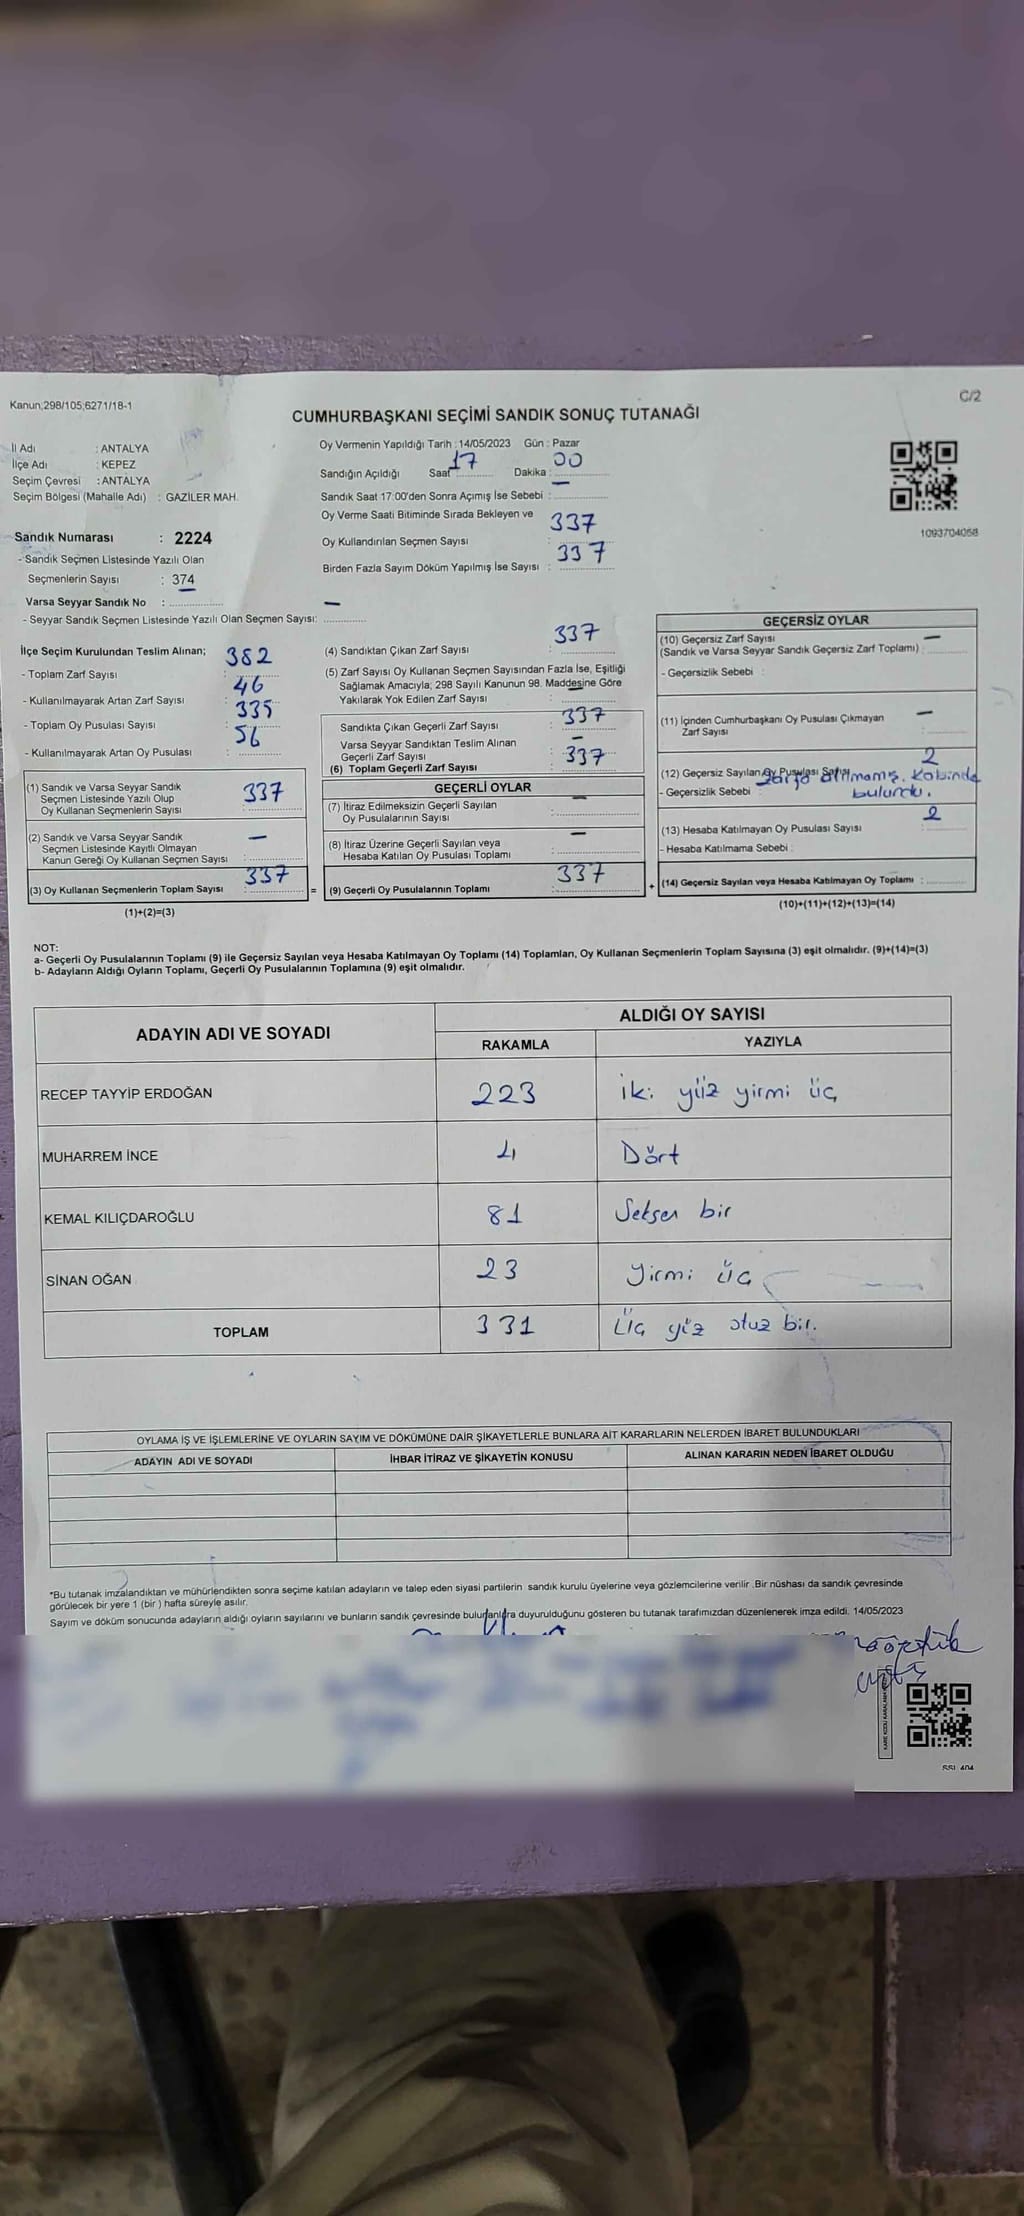 Kanun;298/105;6271/18-1
C/2
CUMHURBAŞKANI SEÇİMİ SANDIK SONUÇ TUTANAĞI
İl Adı : ANTALYA
İlçe Adı : KEPEZ
Seçim Çevresi : ANTALYA
Seçim Bölgesi (Mahalle Adı) : GAZİLER MAH.
Sandık Numarası : 2224
- Sandık Seçmen Listesinde Yazılı Olan
Seçmenlerin Sayısı : 374
Varsa Seyyar Sandık No : —
- Seyyar Sandık Seçmen Listesinde Yazılı Olan Seçmen Sayısı:
Oy Vermenin Yapıldığı Tarih : 14/05/2023 Gün : Pazar
Sandığın Açıldığı Saat 17 Dakika : 00
Sandık Saat 17:00'den Sonra Açımış İse Sebebi : —
Oy Verme Saati Bitiminde Sırada Bekleyen ve
Oy Kullandırılan Seçmen Sayısı : 337
Birden Fazla Sayım Döküm Yapılmış İse Sayısı : 337
1093704058
İlçe Seçim Kurulundan Teslim Alınan;
- Toplam Zarf Sayısı : 382
- Kullanılmayarak Artan Zarf Sayısı : 46
- Toplam Oy Pusulası Sayısı : 335
- Kullanılmayarak Artan Oy Pusulası : 56
(1) Sandık ve Varsa Seyyar Sandık
Seçmen Listesinde Yazılı Olup
Oy Kullanan Seçmenlerin Sayısı : 337
(2) Sandık ve Varsa Seyyar Sandık
Seçmen Listesinde Kayıtlı Olmayan
Kanun Gereği Oy Kullanan Seçmen Sayısı : —
(3) Oy Kullanan Seçmenlerin Toplam Sayısı : 337
(1)+(2)=(3)
(4) Sandıktan Çıkan Zarf Sayısı : 337
(5) Zarf Sayısı Oy Kullanan Seçmen Sayısından Fazla İse, Eşitliği
Sağlamak Amacıyla; 298 Sayılı Kanunun 98. Maddesine Göre
Yakılarak Yok Edilen Zarf Sayısı : —
Sandıkta Çıkan Geçerli Zarf Sayısı : 337
Varsa Seyyar Sandıktan Teslim Alınan
Geçerli Zarf Sayısı : —
(6) Toplam Geçerli Zarf Sayısı : 337
GEÇERLİ OYLAR
(7) İtiraz Edilmeksizin Geçerli Sayılan
Oy Pusulalarının Sayısı : —
(8) İtiraz Üzerine Geçerli Sayılan veya
Hesaba Katılan Oy Pusulası Toplamı : —
= (9) Geçerli Oy Pusulalarının Toplamı : 337
GEÇERSİZ OYLAR
(10) Geçersiz Zarf Sayısı
(Sandık ve Varsa Seyyar Sandık Geçersiz Zarf Toplamı) : —
- Geçersizlik Sebebi :
(11) İçinden Cumhurbaşkanı Oy Pusulası Çıkmayan
Zarf Sayısı : —
(12) Geçersiz Sayılan Oy Pusulası Sayısı 2
- Geçersizlik Sebebi : zarfa atılmamış. Kabinde
bulundu.
(13) Hesaba Katılmayan Oy Pusulası Sayısı : 2
- Hesaba Katılmama Sebebi :
+ (14) Geçersiz Sayılan veya Hesaba Katılmayan Oy Toplamı :
(10)+(11)+(12)+(13)=(14)
NOT:
a- Geçerli Oy Pusulalarının Toplamı (9) ile Geçersiz Sayılan veya Hesaba Katılmayan Oy Toplamı (14) Toplamları, Oy Kullanan Seçmenlerin Toplam Sayısına (3) eşit olmalıdır. (9)+(14)=(3)
b- Adayların Aldığı Oyların Toplamı, Geçerli Oy Pusulalarının Toplamına (9) eşit olmalıdır.
ADAYIN ADI VE SOYADI
ALDIĞI OY SAYISI
RAKAMLA YAZIYLA
RECEP TAYYİP ERDOĞAN 223 iki yüz yirmi üç
MUHARREM İNCE 4 Dört
KEMAL KILIÇDAROĞLU 81 Seksen bir
SİNAN OĞAN 23 yirmi üç
TOPLAM 331 Üç yüz otuz bir.
OYLAMA İŞ VE İŞLEMLERİNE VE OYLARIN SAYIM VE DÖKÜMÜNE DAİR ŞİKAYETLERLE BUNLARA AİT KARARLARIN NELERDEN İBARET BULUNDUKLARI
ADAYIN ADI VE SOYADI İHBAR İTİRAZ VE ŞİKAYETİN KONUSU ALINAN KARARIN NEDEN İBARET OLDUĞU
*Bu tutanak imzalandıktan ve mühürlendikten sonra seçime katılan adayların ve talep eden siyasi partilerin sandık kurulu üyelerine veya gözlemcilerine verilir. Bir nüshası da sandık çevresinde
görülecek bir yere 1 (bir) hafta süreyle asılır.
Sayım ve döküm sonucunda adayların aldığı oyların sayılarını ve bunların sandık çevresinde bulunanlara duyurulduğunu gösteren bu tutanak tarafımızdan düzenlenerek imza edildi. 14/05/2023